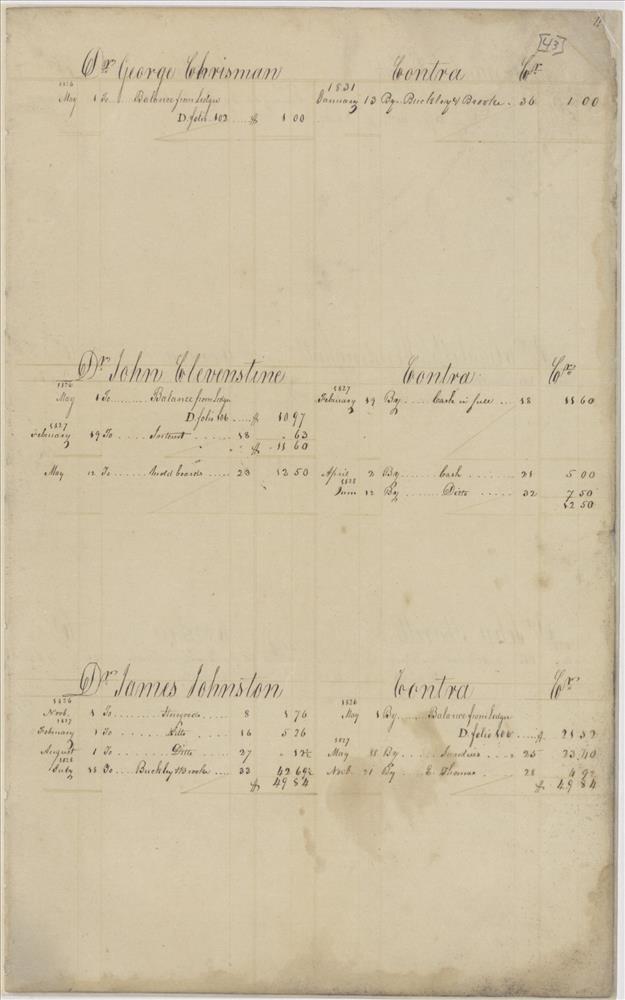 [43]
Dr George Chrisman Contra Cr
1826 1831
May 1 To Balance from Ledger January 13 By Buckley & Brooke 36 1 00
D folio 102 $ 1 00
Dr John Clevenstine Contra Cr
1826 1827
May 1 To Balance from Ledger February 19 By Cash in full 18 11 60
D folio 106 $ 10 97
1827
February 19 To Interest 18 . 63
$ 11 60
May 12 To Mold boards 23 12 50 April 2 By Cash 21 5 00
1828
June 12 By Ditto 32 7 50
12 50
Dr James Johnston Contra Cr
1826 1826
Novb. 1 To 8 1 76 May 1 By Balance from Ledger
1827
February 1 To Ditto 16 5 26 D folio 106 $ 21 52
1827
August 1 To Ditto 27 . 12½ May By Sundries 25 23 40
1828
July To Buckley & Brooke 33 42 69½ Novb. 21 By E. Thomas 28 4 92
$ 49 84 $ 49 84